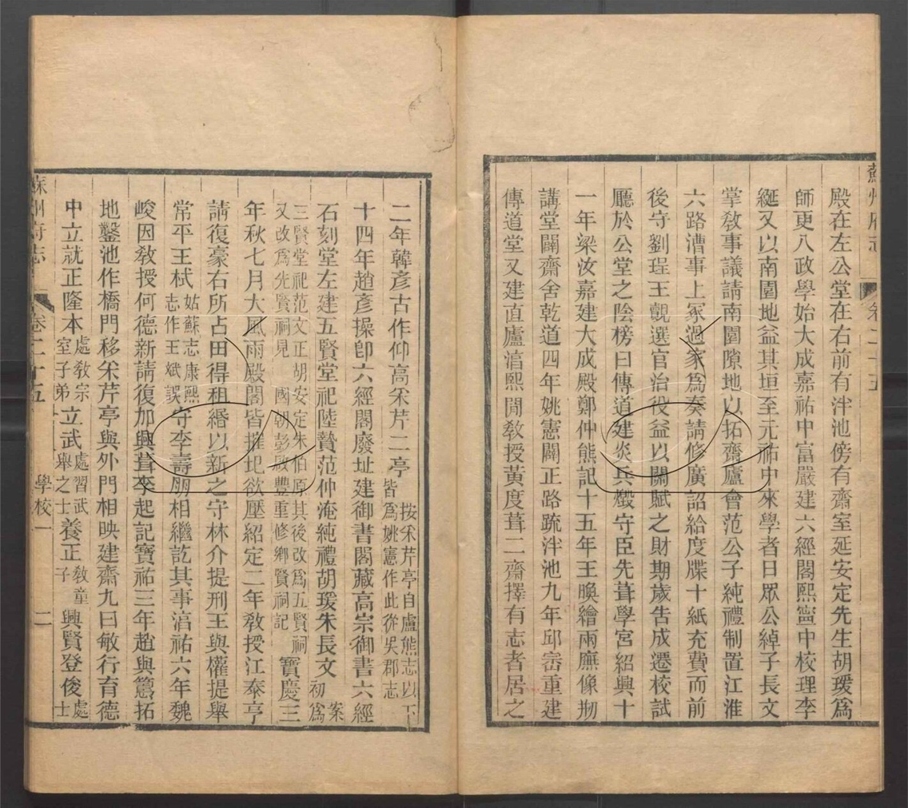 殿在左公堂在右前有泮池傍有齋室延安定先生胡瑗爲
師更八政學始大成嘉祐中富嚴建六經閣熙寧中校理李
綖又以南園地益其垣至元祐中來學者日眾公綽子長文
掌教事議請南園隙地以拓齋廬會范公子純禮制置江淮
六路漕事上冢過家爲奏請修廣詔給度牒十紙充費而前
後守劉珵王覿選官治役益以閒賦之財期歲告成遷校試
廳於公堂之陰榜曰傳道建炎兵燬守臣先葺學宮紹興十
一年梁汝嘉建大成殿鄭仲熊記十五年王㬇繪兩廡像剏
講堂闢齋舍乾道四年姚憲闢正路疏泮池九年邱崈重建
傳道堂又建直廬滈熙閒教授黃度葺二齋擇有志者居之
二年韓彥古作仰高采芹二亭按采芹亭自盧熊志以下皆爲姚憲作此從吳郡志
十四年趙彥操卽六經閣廢址建御書閣藏高宗御書六經
石刻堂左建五賢堂祀陸贄范仲淹純禮胡瑗朱長文案初爲
三賢堂祀范文正胡安定朱伯原其後改爲五賢祠又改爲先賢祠見 國朝彭啟豐重修鄉賢祠記寶慶三
年秋七月大風雨殿閣皆摧圯欲壓紹定二年教授江泰亨
請復豪右所占田得租緡以新之守林介提刑王與權提舉
常平王栻姑蘇志康熙志作王斌誤守李壽朋相繼訖其事滈祐六年魏
峻因教授何德新請復加興葺李起記寶祐三年趙與𥲅拓
地鑿池作橋門移采芹亭與外門相映建齋九曰敏行育德
中立就正隆本處教宗室子弟立武處習武舉之士養正處教童子興賢登俊處士
蘇州府志 卷二十五 學校一 二